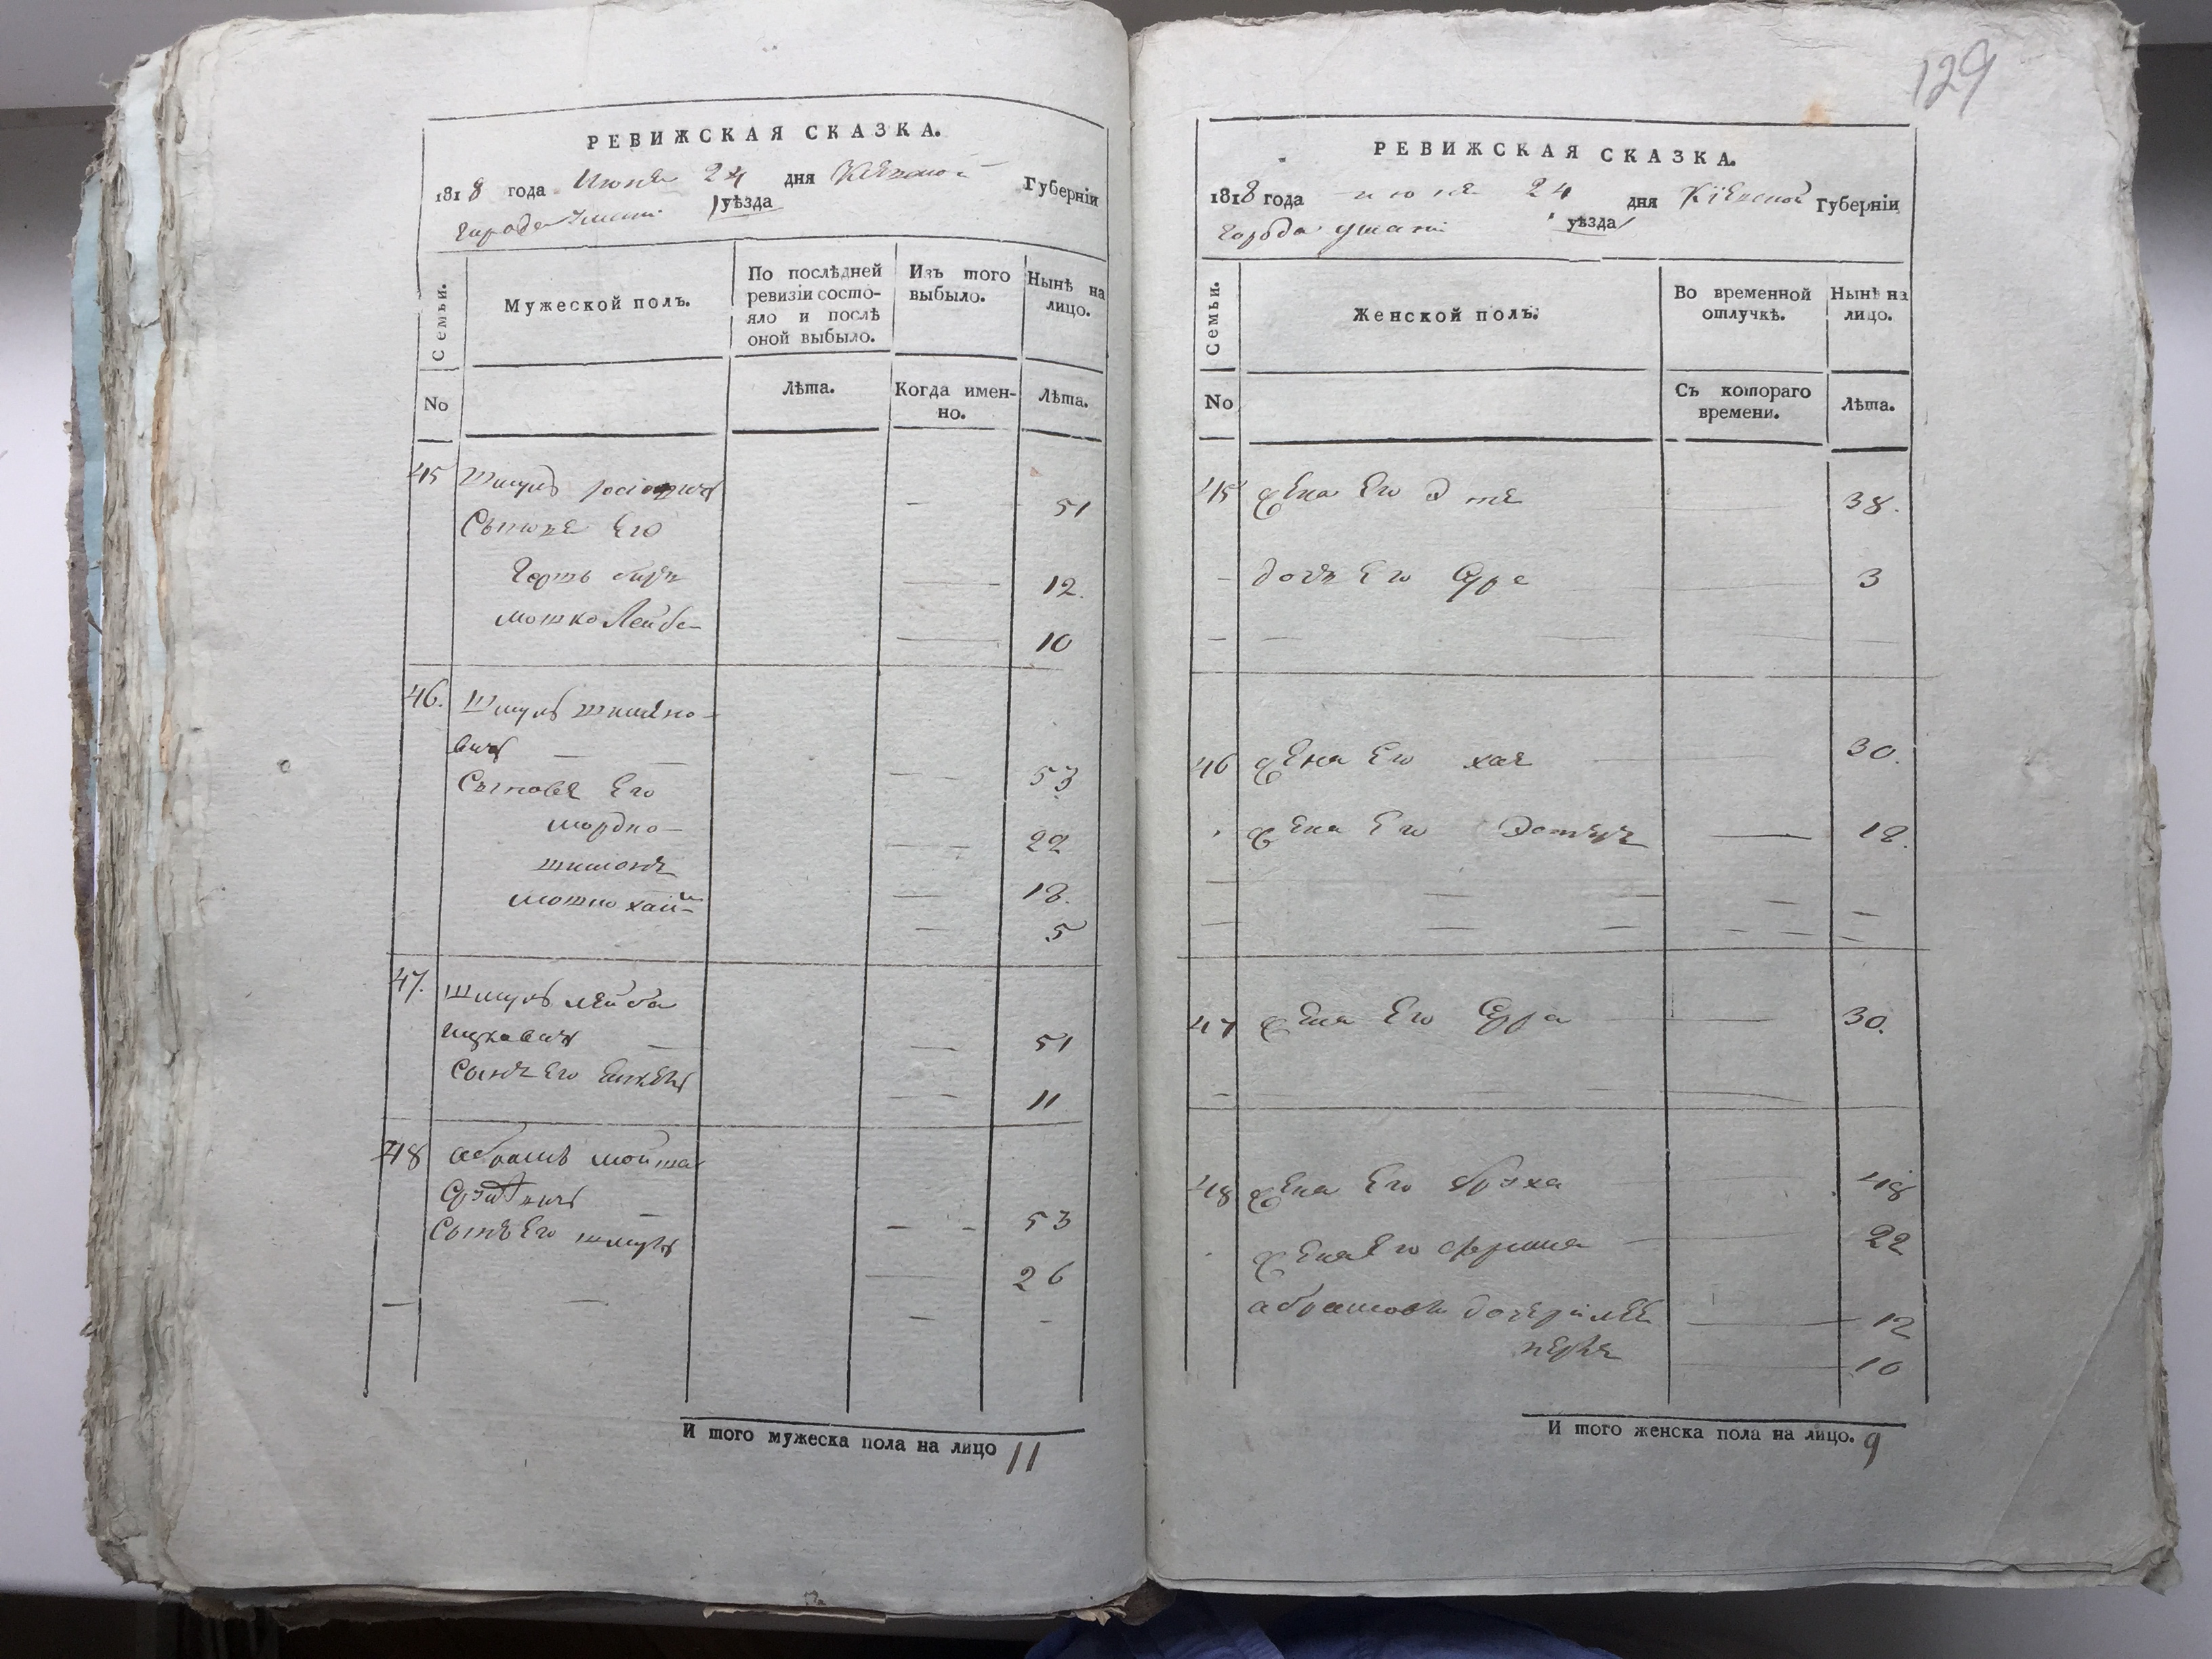 129
РЕВИЖСКАЯ СКАЗКА.
1818 года Июня 24 дня Киевской Губерніи
города Умани уѣзда
Семьи.
Мужеской полъ.
По послѣдней ревизіи состо-
яло и послѣ оной выбыло.
Изъ того выбыло.
Нынѣ на лицо.
No
Лѣта.
Когда имен-
но.
Лѣта.
45 Шмуль
51
Сыновя Его
Гершъ
12.
мошко Лейба
10
46. Шмуль шимоно-
вичъ
53
Сыновя Его
мордко
22
шимонъ
18.
мошко хаим
5
47. шмуль лейба
ицковичъ
51
Сынъ Его
11
48 абрамъ
53
Сынъ Его шмуль
26
И того мужеска пола на лицо 11
РЕВИЖСКАЯ СКАЗКА.
1818 года июня 24 дня Кіевской Губерніи
города умани уѣзда
Семьи.
Женской полъ.
Во временной отлучкѣ.
Нынѣ на лицо.
No
Съ котораго времени.
Лѣта.
45 Жена Его Эте 38.
дочь Его Суре 3
46 Жена Его хая 30.
Жена Его Эстеръ 18.
47 Жена Его Сура 30.
48 Жена Его 48
Жена Его фрима 22
абрамовы дочери лея 12
10
И того женска пола на лицо. 9